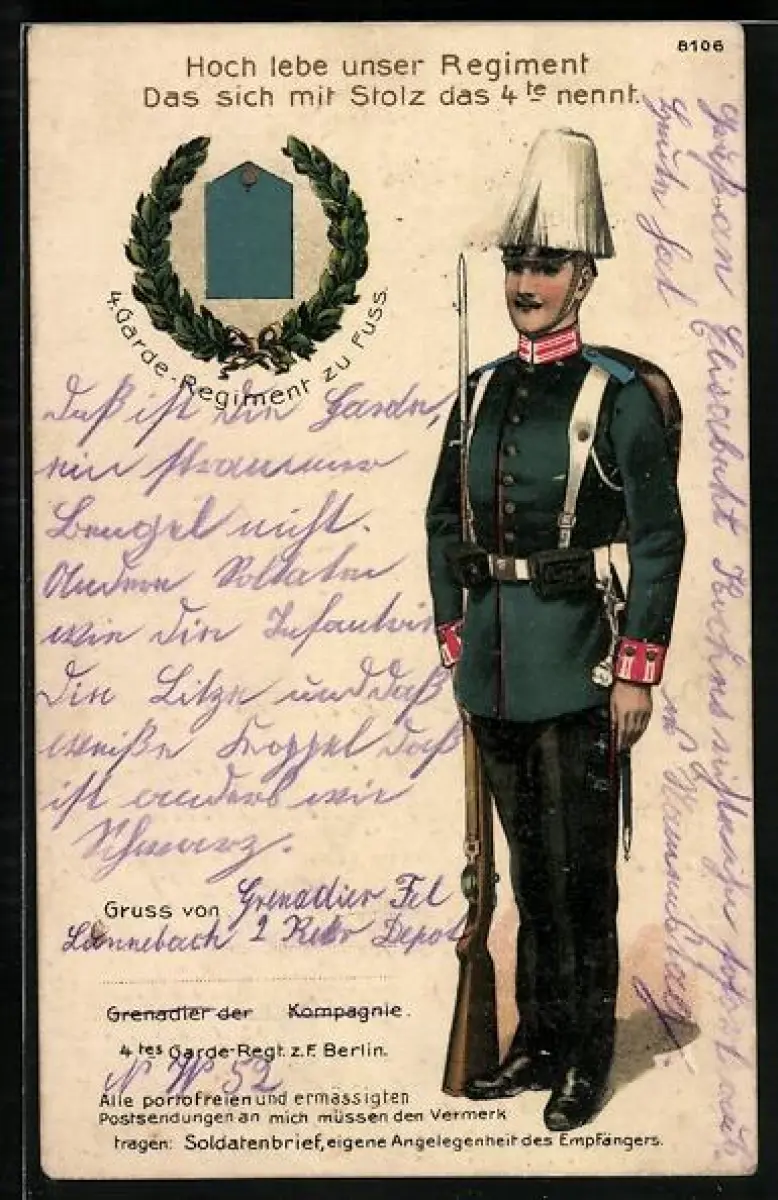 8106
Hoch lebe unser Regiment
Das sich mit Stolz das 4te nennt.
4. Garde-Regiment zu Fuss.
Daß ist die Garde,
ein strammer
Bengel nicht.
Andere Soldaten
wie die Infantrie
die Litze und daß
weiße Koppel daß
ist anders wie
Schwarz.
Gruss von Grenadier Fel
Lannebach 2 Rekr Depot
Grenadier der Kompagnie.
4tes Garde-Regt. z. F. Berlin.
N W 52
Alle portofreien und ermässigten
Postsendungen an mich müssen den Vermerk
tragen: Soldatenbrief, eigene Angelegenheit des Empfängers.
Gruß an Elisabeht